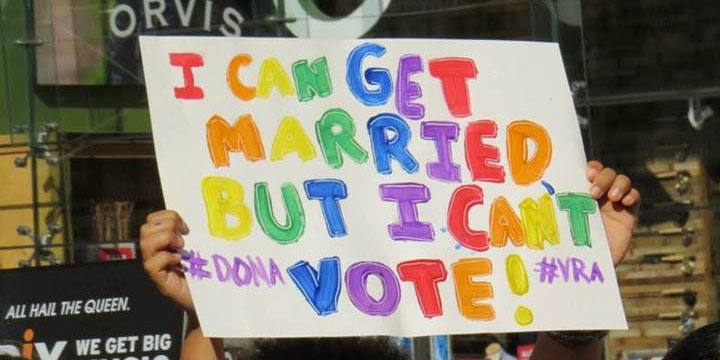 ORVIS
I CAN GET
MARRIED
BUT I CAN'T
#DOMA VOTE! #VRA
ALL HAIL THE QUEEN.
WE GET BIG